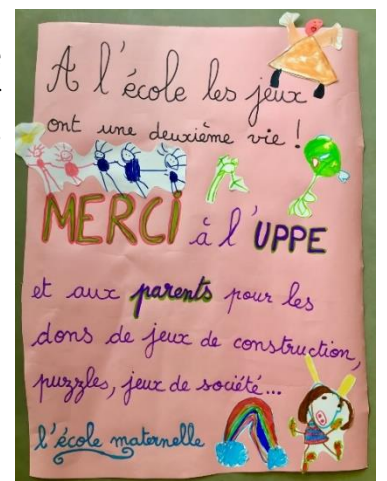 A l'école les jeux
ont une deuxième vie !
MERCI à l'UPPE
et aux parents pour les
dons de jeux de construction,
puzzles, jeux de société...
l'école maternelle